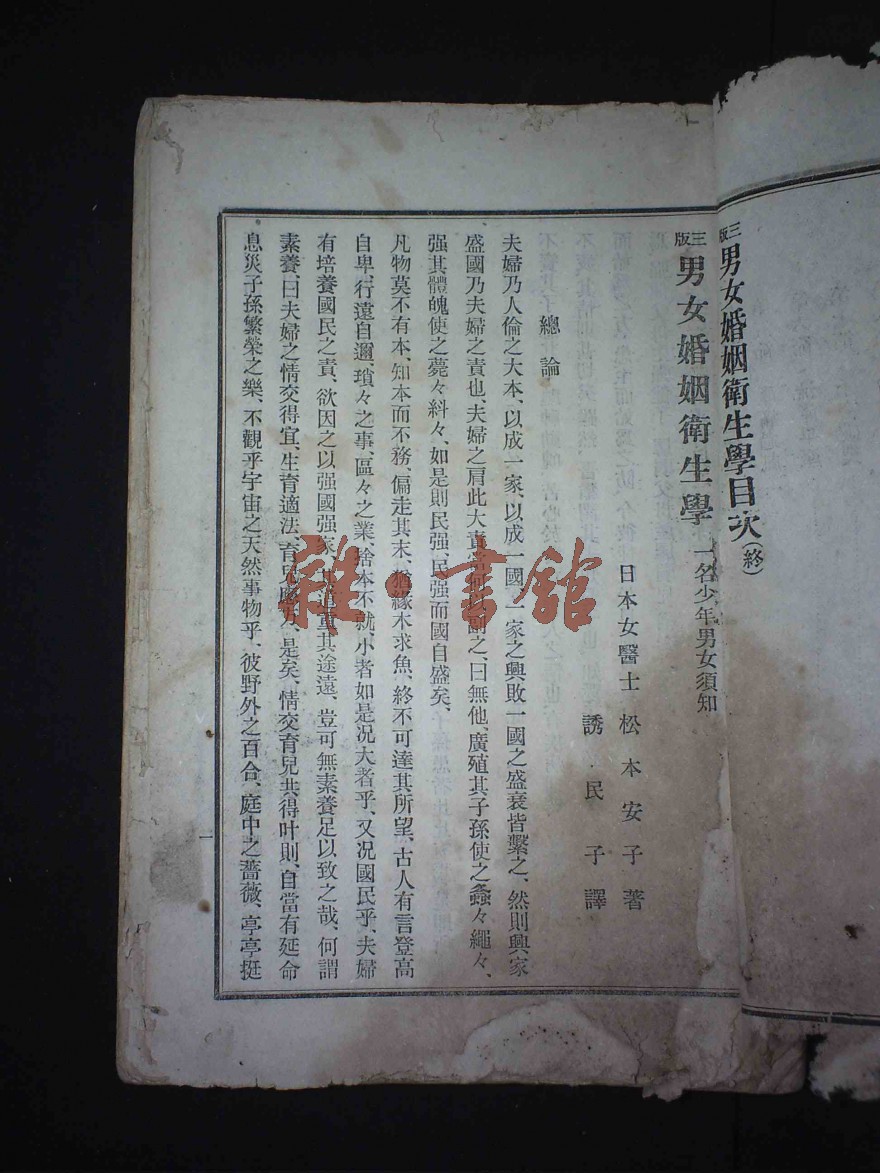 三版 男女婚姻衞生學目次(終)
三版 男女婚姻衞生學 一名少年男女須知
日本女醫士 松本安子著
誘民子譯
總論
夫婦乃人倫之大本、以成一家、以成一國、一家之興敗一國之盛衰皆繫之、然則興家
盛國乃夫婦之責也、夫婦之肩此大責當何以副之、曰無他、廣殖其子孫使之螽々繩々、
强其體魄使之薨々糾々、如是則民强、民强而國自盛矣、
凡物莫不有本、知本而不務、偏走其末、猶緣木求魚、終不可達其所望、古人有言登高
自卑、行遠自邇、瑣々之事、區々之業、捨本不就、小者如是况大者乎、又况國民乎、夫婦
有培養國民之責、欲因之以强國强家、其途遠、豈可無素養足以致之哉、何謂
素養、曰夫婦之情交得宜、生育適法、育兒是矣、情交育兒共得叶則、自當有延命
息災子孫繁榮之樂、不觀乎宇宙之天然事物乎、彼野外之百合、庭中之薔薇、亭亭挺
一
雜·書館